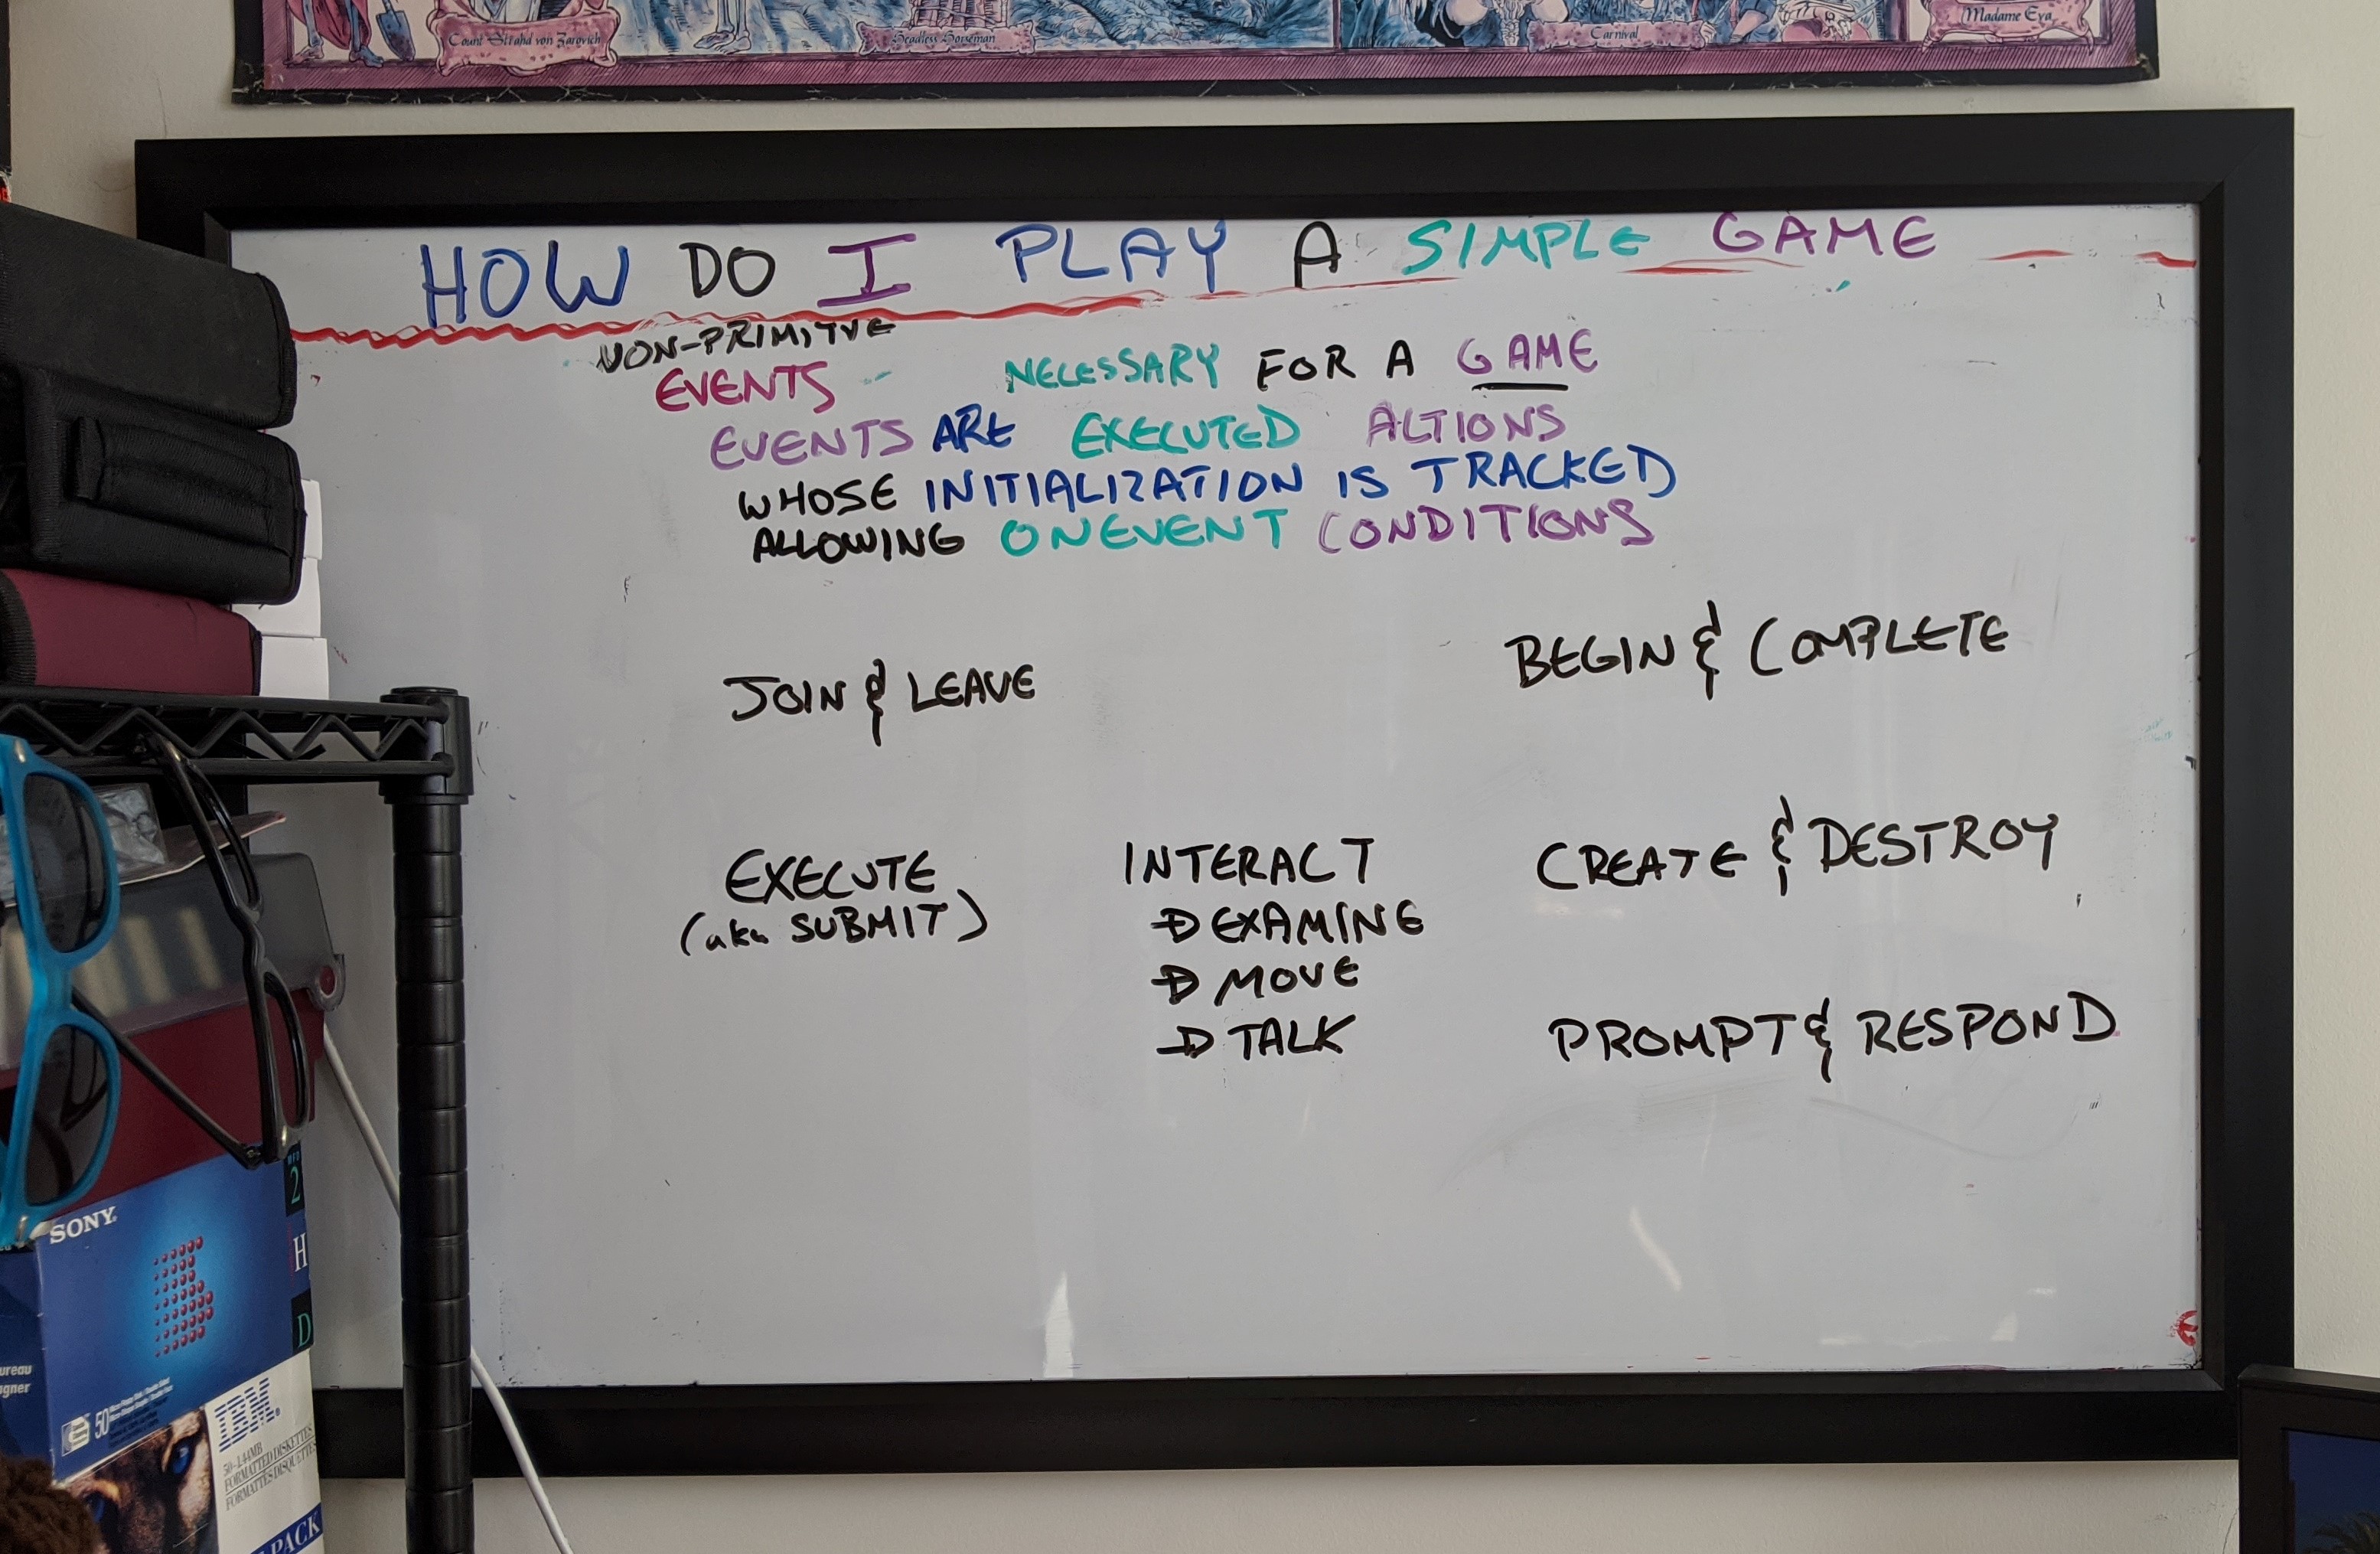 Count Strahd von Zarovich
Headless Horseman
Carnival
Madame Eva
HOW DO I PLAY A SIMPLE GAME
NON-PRIMITVE
EVENTS NECESSARY FOR A GAME
EVENTS ARE EXECUTED ACTIONS
WHOSE INITIALIZATION IS TRACKED
ALLOWING ONEVENT CONDITIONS
JOIN & LEAVE
BEGIN & COMPLETE
EXECUTE
(aka SUBMIT)
INTERACT
EXAMINE
MOVE
TALK
CREATE & DESTROY
PROMPT & RESPOND
SONY
2
H
D
ureau
gner
50
IBM
50-1.44MB
FORMATTED DISKETTES
FORMATTÉES DISQUETTES
PACK